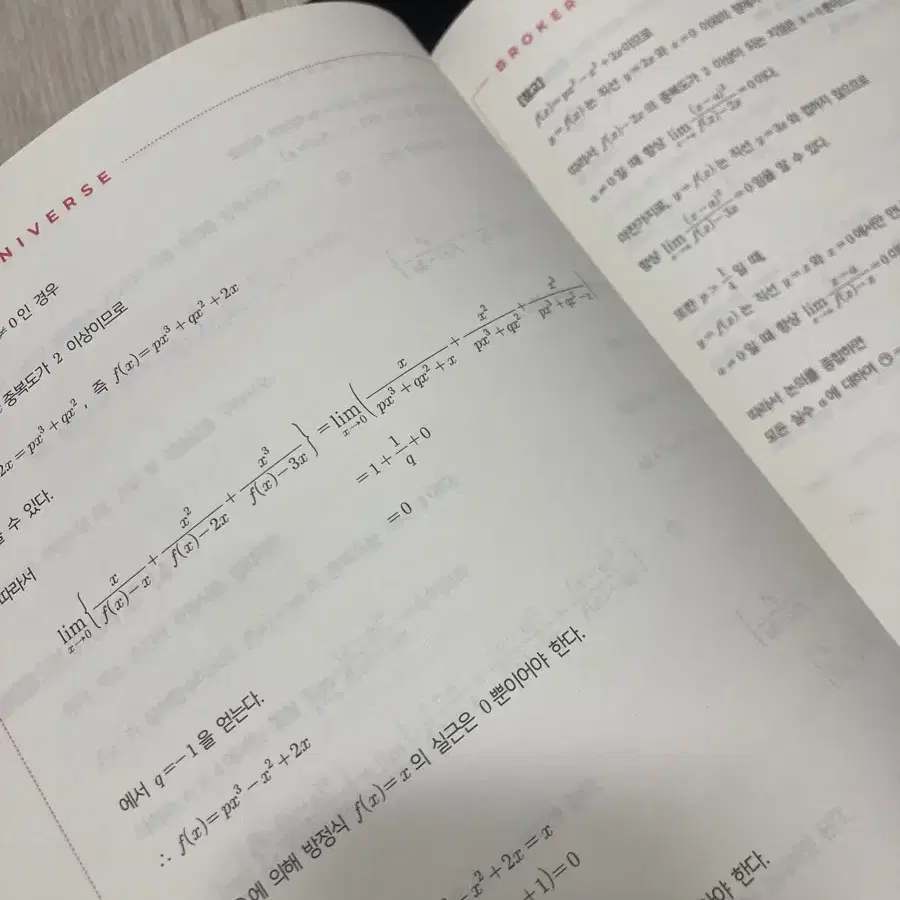 NIVERSE
≠ 0인 경우
중복도가 2 이상이므로
2x = px³ + qx², 즉 f(x) = px³ + qx² + 2x
수 있다.
따라서
lim_{x→0} { x/(f(x)−x) + x²/(f(x)−2x) + x³/(f(x)−3x) } = lim_{x→0} ( x/(px³+qx²+x) + x²/(px³+qx²) + x³/(px³+qx²−x) )
= 1 + 1/q + 0
= 0
에서 q = −1을 얻는다.
∴ f(x) = px³ − x² + 2x
에 의해 방정식 f(x) = x의 실근은 0뿐이어야 한다.
− x² + 2x = x
+ 1) = 0
야 한다.
BROKER
[참고]
f(x) = px³ − x² + 2x이므로
y = f(x)는 직선 y = 2x와 x = 0
따라서 f(x) − 2x의 중복도가 3 이상이 되는 지점은
a = 0일 때 항상 lim_{x→a} (x−a)³/(f(x)−2x) = 0이다.
마찬가지로, y = f(x)는 직선 y = 3x와 접하지 않으므로
항상 lim_{x→a} (x−a)³/(f(x)−3x) = 0임을 알 수 있다.
또한 p > 1/4일 때
y = f(x)는 직선 y = x와 x = 0에서만 만
a ≠ 0일 때 항상 lim_{x→a} (x−a)/(f(x)−x) = 0이
따라서 논의를 종합하면
모든 실수 a에 대하여